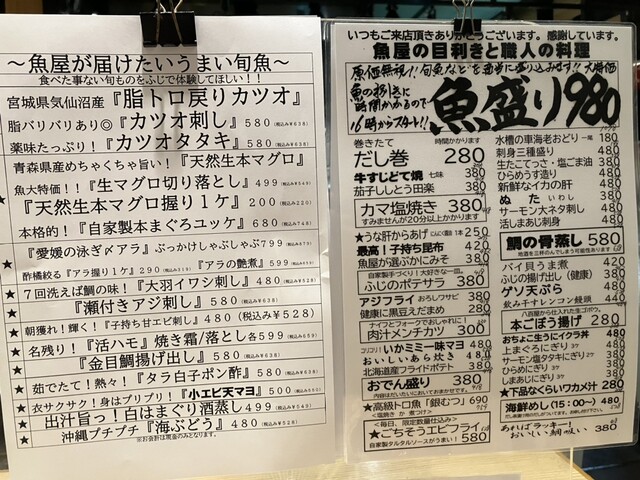 ～魚屋が届けたいうまい旬魚～
食べた事ない旬ものをふじで体験してほしい！！
宮城県気仙沼産『脂トロ戻りカツオ』
脂バリバリあり◎『カツオ刺し』580(税込み¥638)
薬味たっぷり！『カツオタタキ』580(税込み¥638)
青森県産めちゃくちゃ旨い！『天然生本マグロ』
魚大特価！！『生マグロ切り落とし』499(税込み¥549)
『天然生本マグロ握り１ケ』200(税込み¥220)
本格的！『自家製本まぐろユッケ』680(税込み¥748)
★『愛媛の泳ぎ〆アラ』ぶっかけしゃぶしゃぶ799
酢橘絞る『アラ握り１ケ』290 『アラの艶煮』499
★７回洗えば鯛の味！『大羽イワシ刺し』480
★『瀬付きアジ刺し』580(税込み¥638)
★朝獲れ！輝く！『子持ち甘エビ刺し』480(税込み¥528)
★名残り！『活ハモ』焼き霜/落とし各599
★『金目鯛揚げ出し』580(税込み¥638)
★茹でたて！熱々！『タラ白子ポン酢』580
★衣サクサク！身はプリプリ！『小エビ天マヨ』500
★出汁旨っ！白はまぐり酒蒸し499(税込み¥549)
★沖縄プチプチ『海ぶどう』480(税込み¥528)
※お会計は現金のみとなります。
いつもご来店頂きありがとうございます。感謝しています。
魚屋の目利きと職人の料理
原価無視！！旬魚などを適当に盛り込みます！！大特価
魚の捌きに
時間かかるので
16時からスタート！！
魚盛り980
巻きたて 時間かかります
だし巻 280
牛すじどて焼 七味 380
茄子ししとう田楽 380
カマ塩焼き 380
すみませんが20分以上かかります
★うな肝からあげ 250
最高！子持ち昆布 420
魚屋が選ぶかにみそ 480
自家製手づくり！大好きな一皿
ふじのポテサラ 380
アジフライ おろしワサビ 380
健康に黒豆えだまめ 280
ナイフとフォークでおしゃれに！
肉汁メンチカツ 300
コリコリ！いかミミ一味マヨ 480
おいしいあら炊き 480
北海道産フライドポテト 380
おでん盛り 380
内容はだいたいにおいておまかせです。
★高級トロ魚『銀むつ』690
<毎日、限定数量仕込み>
★ごちそうエビフライ
自家製タルタルソースがうまい！ 580
水槽の車海老おどり 一尾 180
刺身三種盛り 480
生たこてっさ・塩ごま油 380
ひらめうすづくり 480
新鮮なイカの肝 480
ぬた いわし 380
サーモン大ネタ刺し 480
活しまあじ刺身 480
鯛の骨蒸し 580
バイ貝うま煮 420
ふじのぬか漬け(健康) 380
ゲソ天ぷら 380
飲み干すレンコン饅頭 440
八百屋から仕入れた生ゴボウ。
本ごぼう揚げ 280
おちょこ生うにイクラ丼 480
土まぐろにぎり
サーモン塩タタキにぎり
ひらめにぎり
しまあじにぎり
★下品なぐらいワカメ汁 280
海鮮めし(15：00～) 480
あればラッキー！
おいしい鯛吸い 380